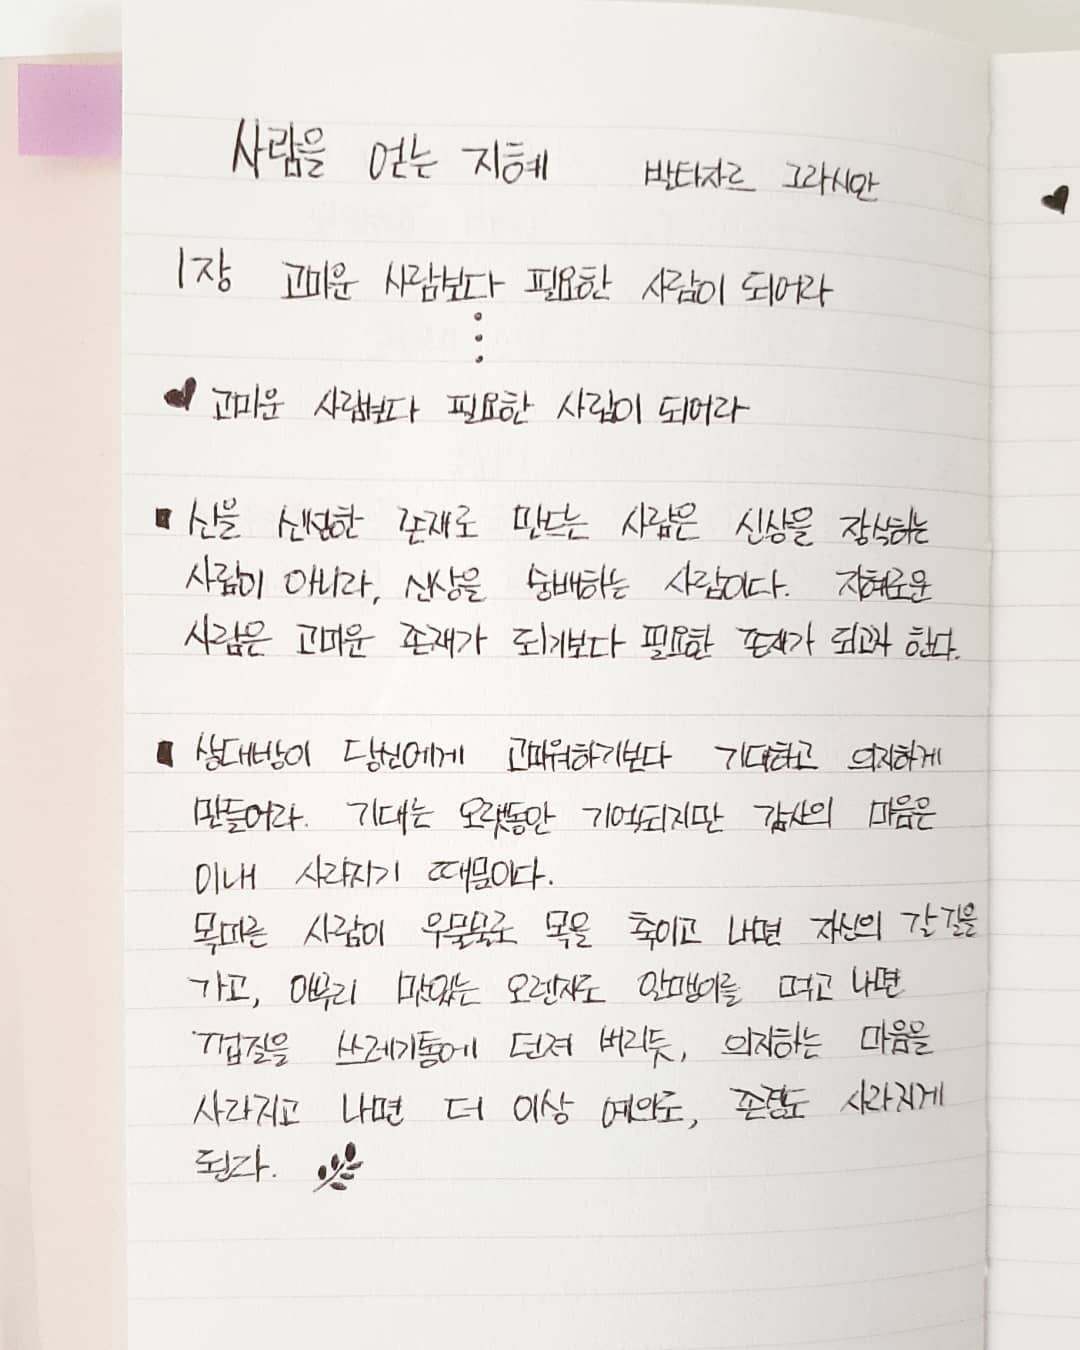 사람을 얻는 지혜 발타자르 그라시안
1장 고마운 사람보다 필요한 사람이 되어라
고마운 사람보다 필요한 사람이 되어라
신을 신성한 존재로 만드는 사람은 신상을 장식하는
사람이 아니라, 신상을 숭배하는 사람이다. 지혜로운
사람은 고마운 존재가 되기보다 필요한 존재가 되고자 한다.
상대방이 당신에게 고마워하기보다 기대하고 의지하게
만들어라. 기대는 오랫동안 기억되지만 감사의 마음은
이내 사라지기 때문이다.
목마른 사람이 우물물로 목을 축이고 나면 자신의 갈 길을
가고, 아무리 맛있는 오렌지도 알맹이를 먹고 나면
껍질을 쓰레기통에 던져 버리듯, 의지하는 마음을
사라지고 나면 더 이상 예의도, 존경도 사라지게
된다.